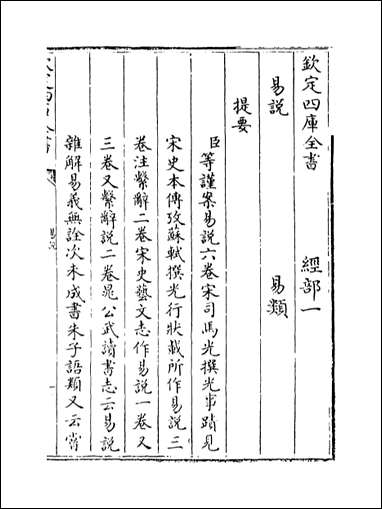 欽定四庫全書 經部一
易說 易類
提要
臣等謹案易說六卷宋司馬光撰光事蹟見
宋史本傳攷蘇軾撰光行狀載所作易說三
卷注繫辭二卷宋史藝文志作易說一卷又
三卷又繫辭說二卷晁公武讀書志云易說
雜解易義無詮次未成書朱子語類又云嘗